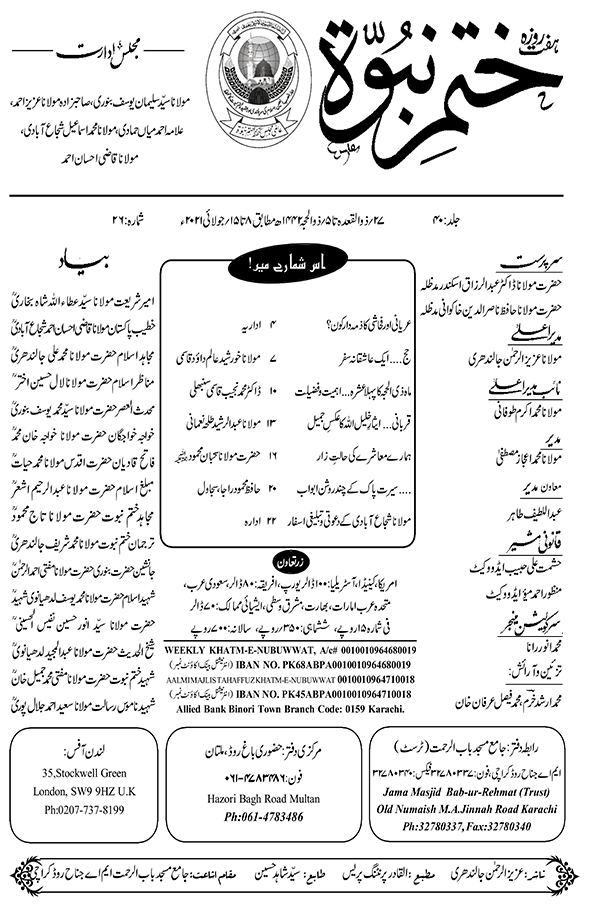 ہفت روزہ
ختم نبوۃ
مجلس ادارت
مولانا سیّد سلیمان یوسف بنوری، صاحبزادہ مولانا عزیز احمد،
علامہ احمد میاں حمادی، مولانا محمد اسماعیل شجاع آبادی،
مولانا قاضی احسان احمد
جلد: ۴۰
۲۷؍ذوالقعدہ تا ۵؍ذوالحجہ ۱۴۴۲ھ مطابق ۸ تا ۱۵؍جولائی ۲۰۲۱ء
شمارہ: ۲۶
سرپرست
حضرت مولانا ڈاکٹر عبدالرزاق اسکندر مدظلہ
حضرت مولانا حافظ ناصر الدین خاکوانی مدظلہ
مدیر اعلےٰ
مولانا عزیز الرحمٰن جالندھری
نائب مدیر اعلےٰ
مولانا محمد اکرم طوفانی
مدیر
مولانا محمد اعجاز مصطفیٰ
معاون مدیر
عبداللطیف طاہر
قانونی مشیر
حشمت علی حبیب ایڈووکیٹ
منظور احمد میؤ ایڈووکیٹ
سرکولیشن منیجر
محمد انور رانا
تزئین و آرائش:
محمد ارشد خرم، محمد فیصل عرفان خان
اس شمارے میں!
عریانی اور فحاشی کا ذمہ دار کون؟ ۴ اداریہ
حج.... ایک عاشقانہ سفر ۷ مولانا خورشید عالم داؤد قاسمی
ماہ ذی الحجہ کا پہلا عشرہ... اہمیت و فضیلت ۱۰ ڈاکٹر محمد نجیب قاسمی سنبھلی
قربانی... ایثار خلیل اللہ کا عکس جمیل ۱۳ مولانا عبدالرشید طلحہ نعمانی
ہمارے معاشرے کی حالت زار ۱۶ حضرت مولانا سحبان محمود
.... سیرت پاک کے چند روشن ابواب ۲۰ حافظ محمود راجا، سجاول
مولانا شجاع آبادی کے دعوتی و تبلیغی اسفار ۲۲ ادارہ
زر تعاون
امریکا، کینیڈا، آسٹریلیا: ۱۰۰ ڈالر یورپ، افریقہ: ۸۰ ڈالر، سعودی عرب،
متحدہ عرب امارات، بھارت، مشرق وسطیٰ، ایشیائی ممالک: ۷۰ ڈالر
فی شمارہ ۱۵ روپے، ششماہی: ۳۵۰ روپے، سالانہ: ۷۰۰ روپے
WEEKLY KHATM-E-NUBUWWAT, A/c# 0010010964680019
IBAN NO. PK68ABPA0010010964680019 (انٹرنیشنل بینک اکاؤنٹ نمبر)
AALMIMAJLISTAHAFFUZKHATM-E-NUBUWWAT 0010010964710018
IBAN NO. PK45ABPA0010010964710018 (انٹرنیشنل بینک اکاؤنٹ نمبر)
Allied Bank Binori Town Branch Code: 0159 Karachi.
بیاد
امیر شریعت مولانا سیّد عطاء اللہ شاہ بخاریؒ
خطیب پاکستان مولانا قاضی احسان احمد شجاع آبادیؒ
مجاہد اسلام حضرت مولانا محمد علی جالندھریؒ
مناظر اسلام حضرت مولانا لال حسین اخترؒ
محدث العصر حضرت مولانا سیّد محمد یوسف بنوریؒ
خواجہ خواجگان حضرت مولانا خواجہ خان محمدؒ
فاتح قادیان حضرت اقدس مولانا محمد حیاتؒ
مبلغ اسلام حضرت مولانا عبدالرحیم اشعرؒ
مجاہد ختم نبوت حضرت مولانا تاج محمودؒ
ترجمان ختم نبوت مولانا محمد شریف جالندھریؒ
جانشین حضرت بنوری حضرت مولانا مفتی احمد الرحمٰنؒ
شہید اسلام حضرت مولانا محمد یوسف لدھیانوی شہیدؒ
حضرت مولانا سیّد انور حسین نفیس الحسینیؒ
شیخ الحدیث حضرت مولانا عبدالمجید لدھیانویؒ
شہید ختم نبوت حضرت مولانا مفتی محمد جمیل خانؒ
شہید ناموس رسالت مولانا سعید احمد جلال پوریؒ
رابطہ دفتر: جامع مسجد باب الرحمت (ٹرسٹ)
ایم اے جناح روڈ کراچی، فون: ۳۲۷۸۰۳۳۷، فیکس: ۳۲۷۸۰۳۴۰
Jama Masjid Bab-ur-Rehmat (Trust)
Old Numaish M.A.Jinnah Road Karachi
Ph:32780337, Fax:32780340
مرکزی دفتر: حضوری باغ روڈ، ملتان
فون: ۰۶۱-۴۷۸۳۴۸۶
Hazori Bagh Road Multan
Ph:061-4783486
لندن آفس:
35,Stockwell Green
London, SW9 9HZ U.K
Ph:0207-737-8199
ناشر: عزیز الرحمٰن جالندھری مطبع: القادر پرنٹنگ پریس طابع: سیّد شاہد حسین مقام اشاعت: جامع مسجد باب الرحمت ایم اے جناح روڈ کراچی